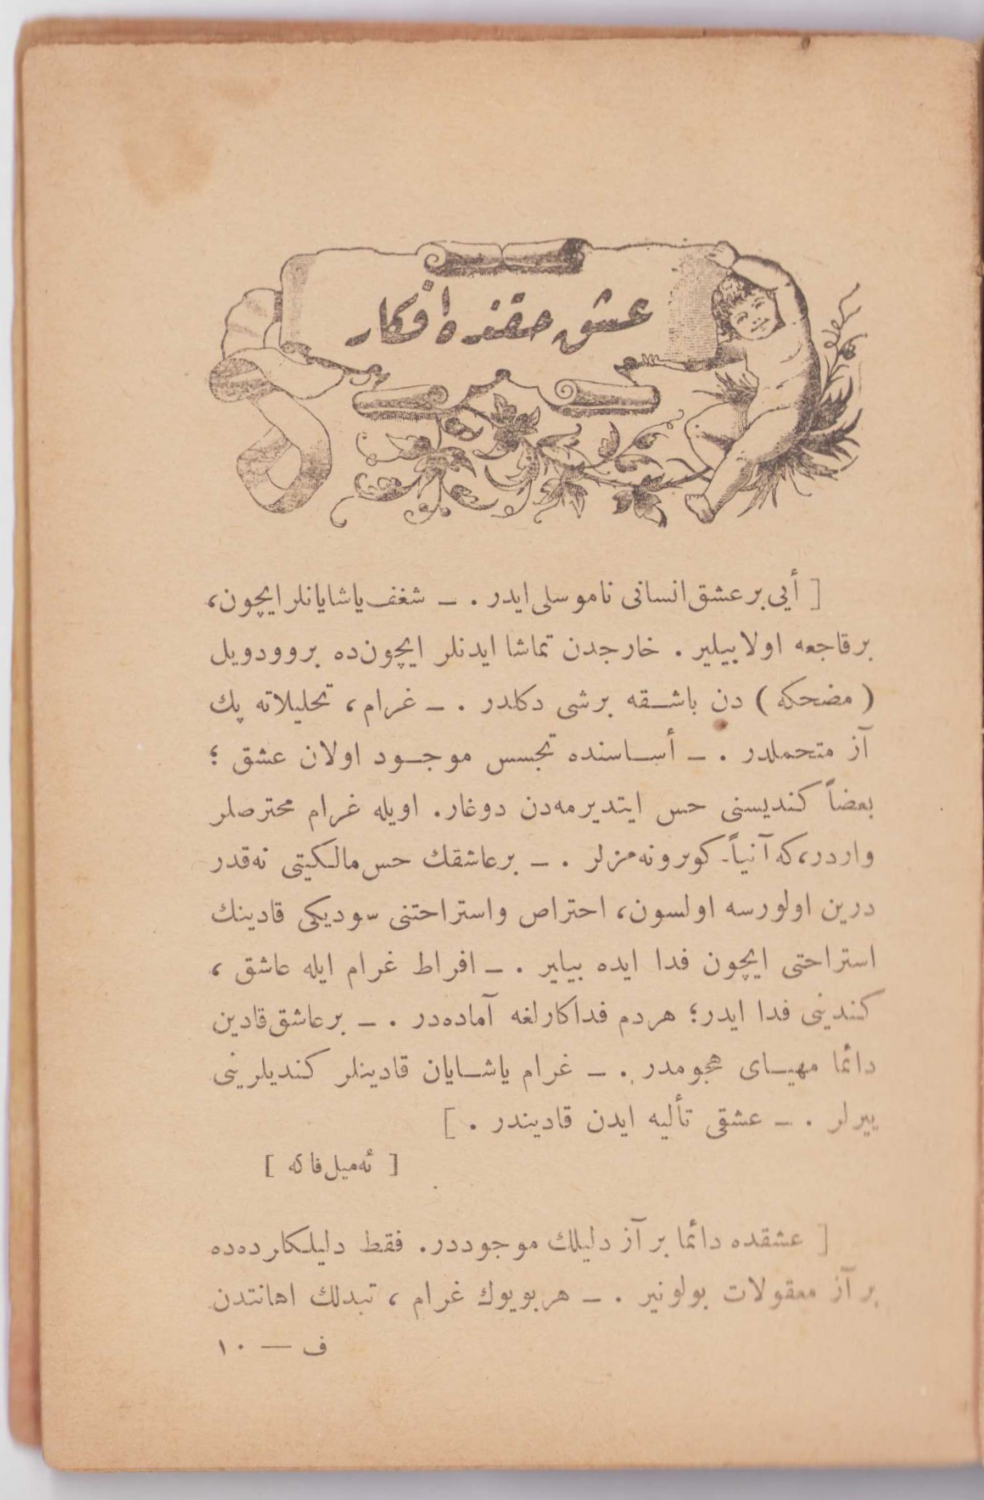 عشق حقنده افکار
[ أیی بر عشق انسانی ناموسلی ایدر . ــ شغف یاشایانلر ایچون،
بر فاجعه اولابیلیر . خارجدن تماشا ایدنلر ایچون‌ده بر وودویل
( مضحکه ) دن باشـقه برشی دکلدر . ــ غرام ، تحلیلاته پك
آز متحملدر . ــ أسـاسنده تجسس موجـود اولان عشق ؛
بعضاً کندیسنی حس ایتدیرمه‌دن دوغار. اویله غرام محترصلر
واردر،که آنیاً کورونه‌مزلر . ــ بر عاشقك حس مالکیتی نه‌قدر
درین اولورسه اولسون، احتراص واستراحتنی سودیکی قادینك
استراحتی ایچون فدا ایده بیلیر . ــ افراط غرام ایله عاشق ،
کندینی فدا ایدر؛ هردم فداکارلغه آماده‌در . ــ بر عاشق قادین
دائما مهیـای هجومدر . ــ غرام یاشـایان قادینلر کندیلرینی
ییرلر . ــ عشقی تألیه ایدن قادیندر . ]
[ ئه‌میل فاکه ]
[ عشقده دائما بر آز دلیلك موجوددر. فقط دلیلکلرده‌ده
بر آز معقولات بولونیر . ــ هر بویوك غرام ، تبدلك اهانتدن
ف — ١٠